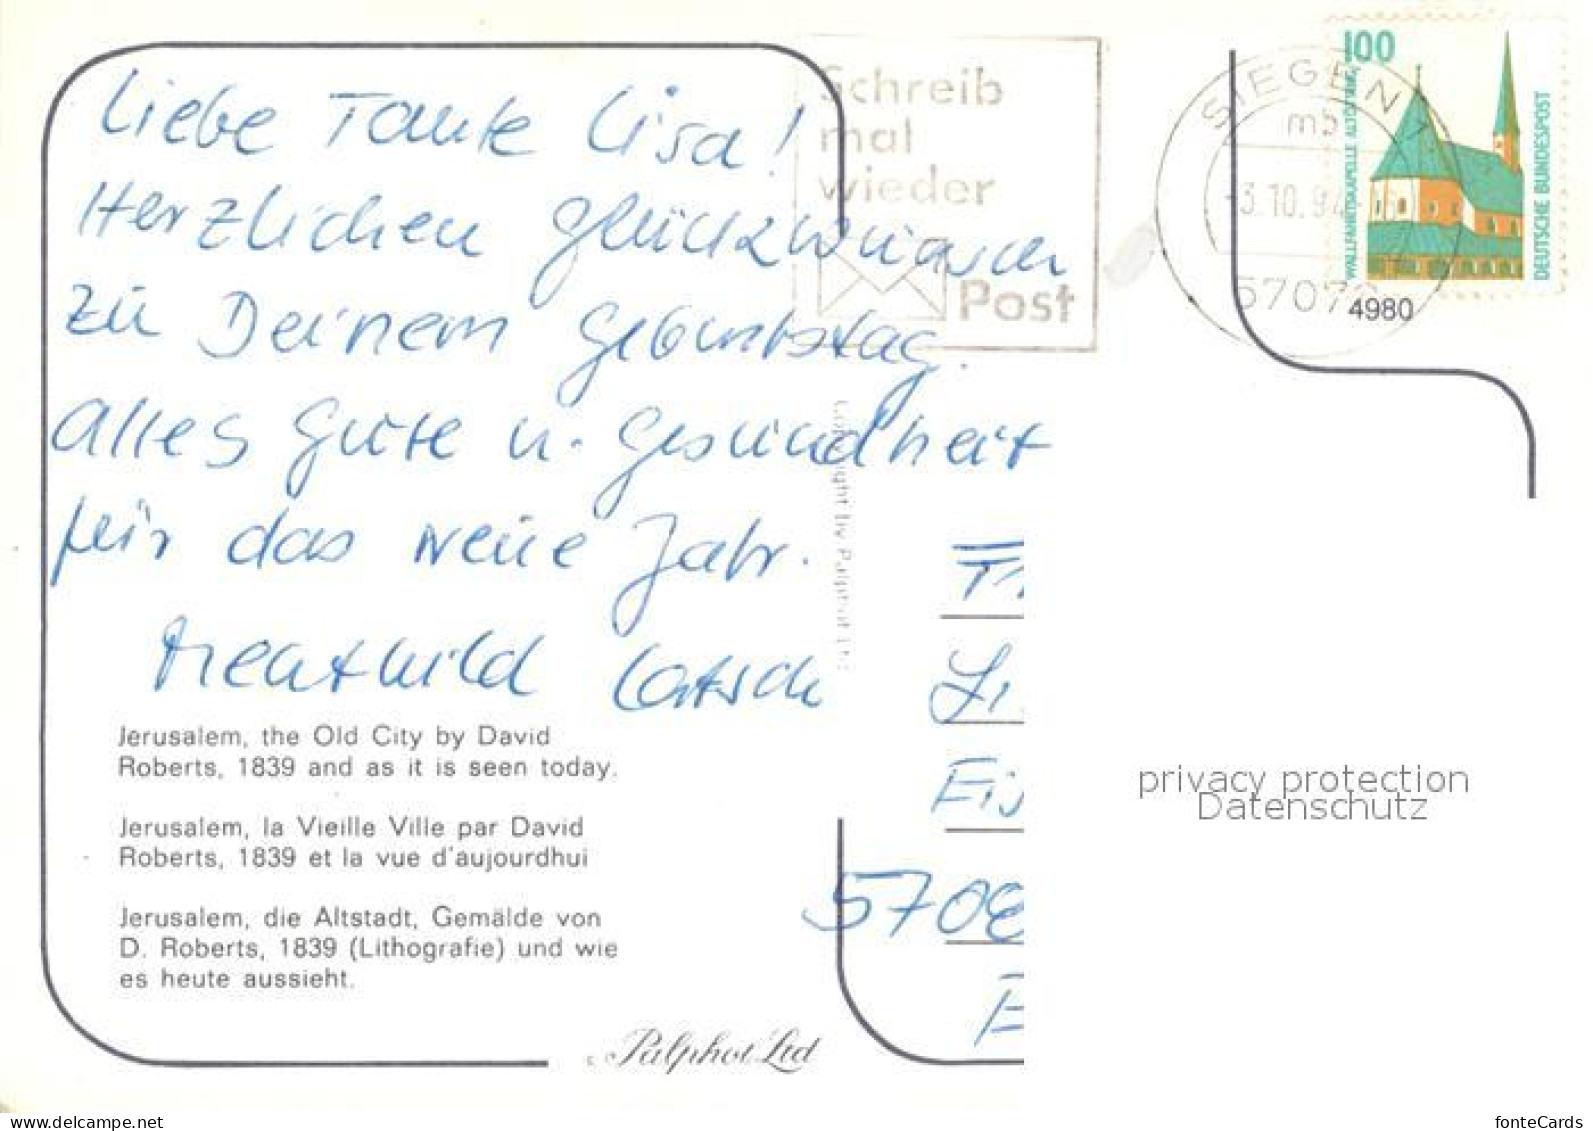 Liebe Tante Lisa!
Herzlichen Glückwunsch
zu Deinem Geburtstag
alles Gute u. Gesundheit
für das neue Jahr.
Mechthild
Schreib
mal
wieder
Post
SIEGEN 1
mb
-3.10.94-
100
WALLFAHRTSKAPELLE ALTÖTTING
DEUTSCHE BUNDESPOST
4980
Copyright by Palphot Ltd
Li
Eis
5708
Jerusalem, the Old City by David
Roberts, 1839 and as it is seen today.
Jerusalem, la Vieille Ville par David
Roberts, 1839 et la vue d'aujourdhui
Jerusalem, die Altstadt, Gemälde von
D. Roberts, 1839 (Lithografie) und wie
es heute aussieht.
Palphot Ltd
privacy protection
Datenschutz
www.delcampe.net
fonteCards